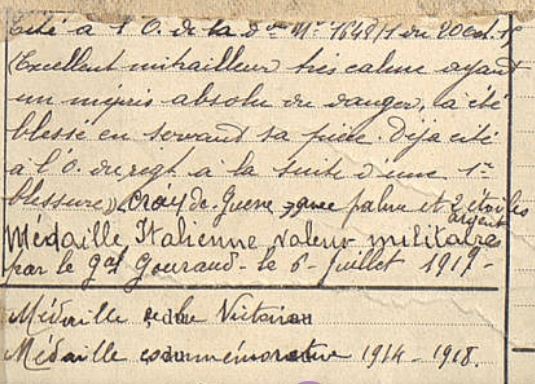 Cité à l'O. de la don No 1648/1 du 20 oct. 15
(Excellent mitrailleur très calme ayant
un mépris absolu du danger, a été
blessé en servant sa pièce. Déjà cité
à l'O. du régt à la suite d'une 1re
blessure) Croix de Guerre avec palme et 2 étoiles
argent
Médaille Italienne valeur militaire
par le gal Gouraud - le 6 - Juillet 1917 -
Médaille de la Victoire
Médaille commémorative 1914 - 1918.